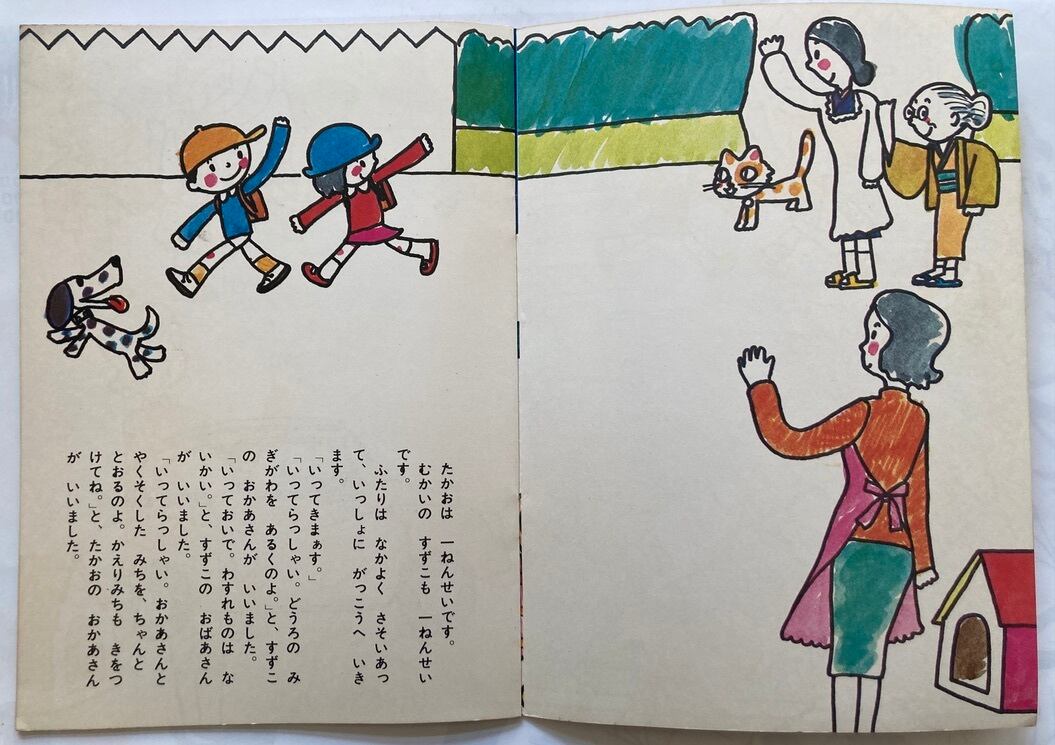 たかおは　一ねんせいです。
むかいの　すずこも　一ねんせい
です。
ふたりは　なかよく　さそいあっ
て、いっしょに　がっこうへ　いき
ます。
「いってきまぁす。」
「いってらっしゃい。どうろの　み
ぎがわを　あるくのよ。」と、すずこ
の　おかあさんが　いいました。
「いっておいで。わすれものは　な
いかい。」と、すずこの　おばあさん
が　いいました。
「いってらっしゃい。おかあさんと
やくそくした　みちを、ちゃんと
とおるのよ。かえりみちも　きをつ
けてね。」と、たかおの　おかあさん
が　いいました。